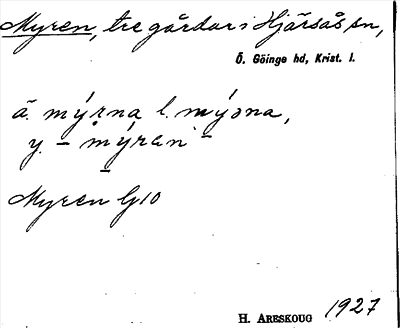 Myren, tre gårdar i Hjärsås sn,
Ö. Göinge hd, Krist. l.
ä. mýrna l. mýəna,
y. – mýran –
Myren G10
H. Areskoug 1927